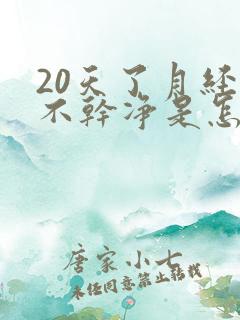 20天了月经
不幹净是怎
唐家小七
未经同意禁止转载